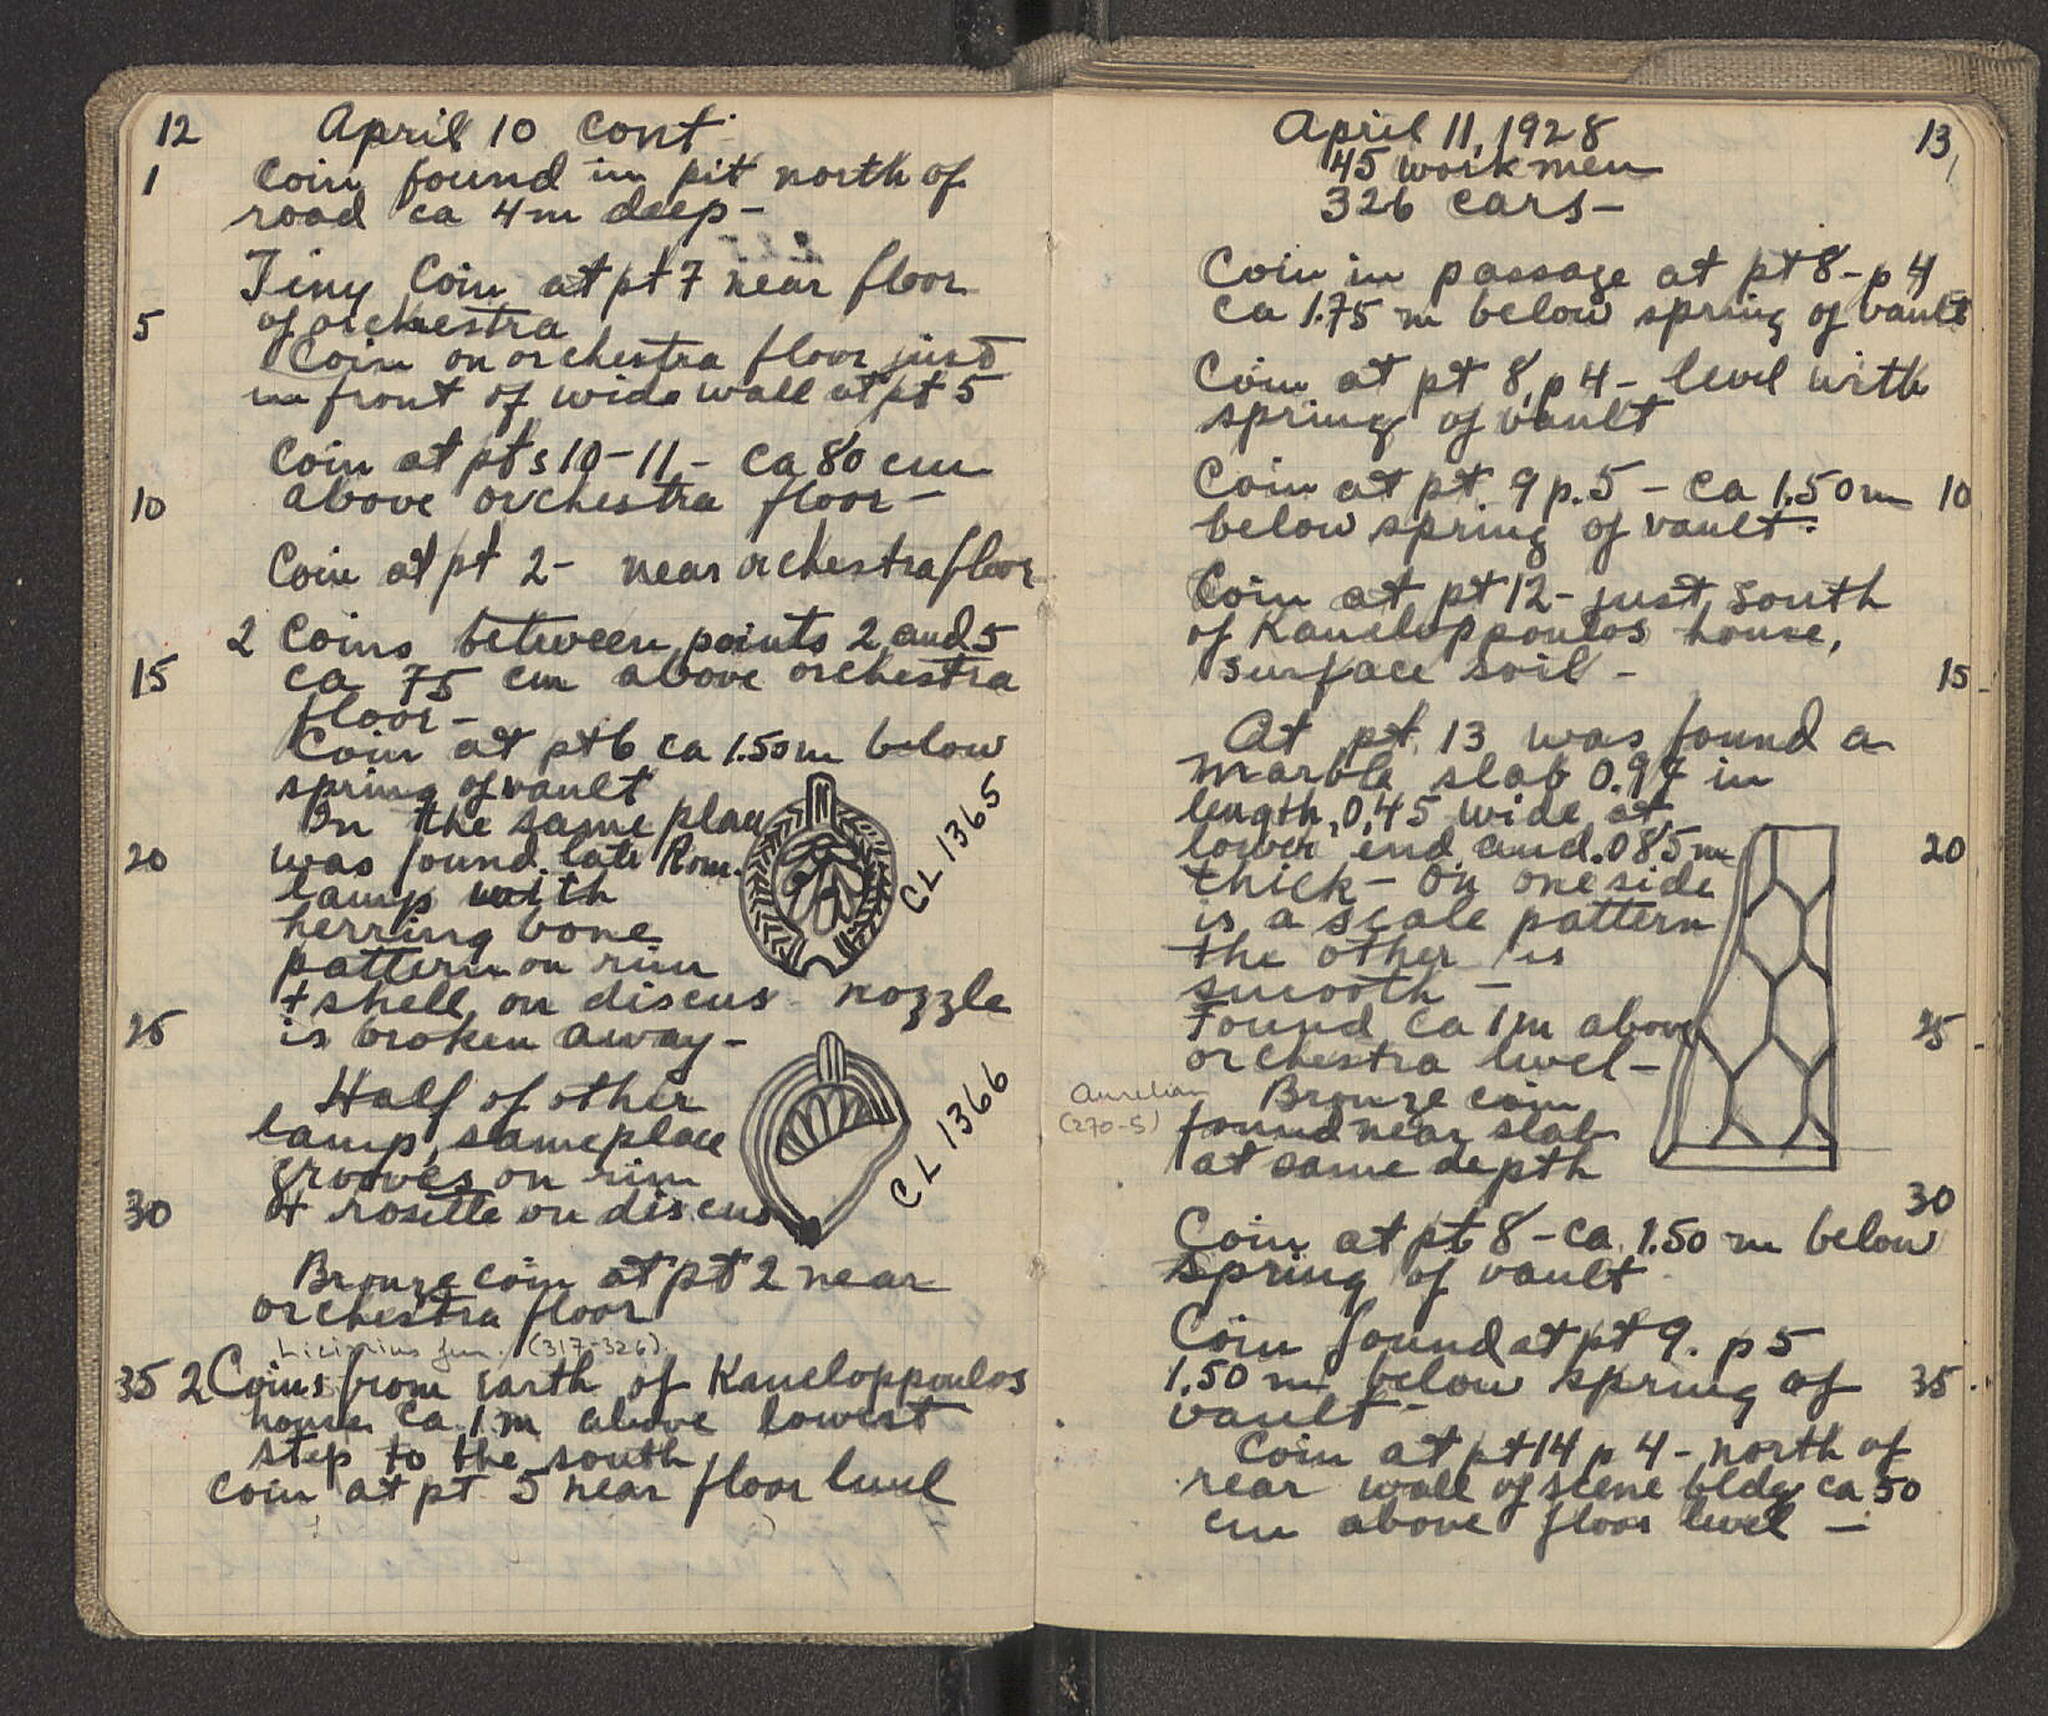 12 April 10 cont.
1 Coin found in pit north of
road ca 4m deep -
Tiny Coin at pt 7 near floor
5 of orchestra
Coin on orchestra floor just
in front of wide wall at pt 5
Coin at pts 10-11 - ca 80 cm
10 above orchestra floor -
Coin at pt 2 - near orchestra floor
2 Coins between points 2 and 5
15 ca 75 cm above orchestra
floor -
Coin at pt 6 ca 1.50 m below
spring of vault
In the same place
20 was found late Rom.
lamp with
herring bone
pattern on rim
+ shell on discus - nozzle
25 is broken away -
CL 1365
Half of other
lamp, same place
grooves on rim
30 + rosette on discus
CL 1366
Bronze coin at pt 2 near
orchestra floor
Licinius Jun. (317-326)
35 2 Coins from earth of Kaneloppoulos
house ca 1 m above lowest
step to the south
Coin at pt 5 near floor level
April 11, 1928 13
45 workmen
326 cars -
Coin in passage at pt 8 - p 4
ca 1.75 m below spring of vault
Coin at pt 8, p 4 - level with
spring of vault
Coin at pt 9 p. 5 - ca 1.50 m 10
below spring of vault.
Coin at pt 12 - just south
of Kaneloppoulos house,
surface soil - 15
At pt. 13 was found a
marble slab 0.97 in
length, 0.45 wide at
lower end and .085 m 20
thick - On one side
is a scale pattern
the other is
smooth -
Found ca 1 m above 25
orchestra level -
Aurelian
(270-5)
Bronze coin
found near slab
at same depth
30
Coin at pt 8 - ca 1.50 m below
spring of vault
Coin found at pt 9. p 5
1.50 m below spring of 35
vault -
Coin at pt 14 p 4 - north of
rear wall of scene bldg ca 50
cm above floor level -